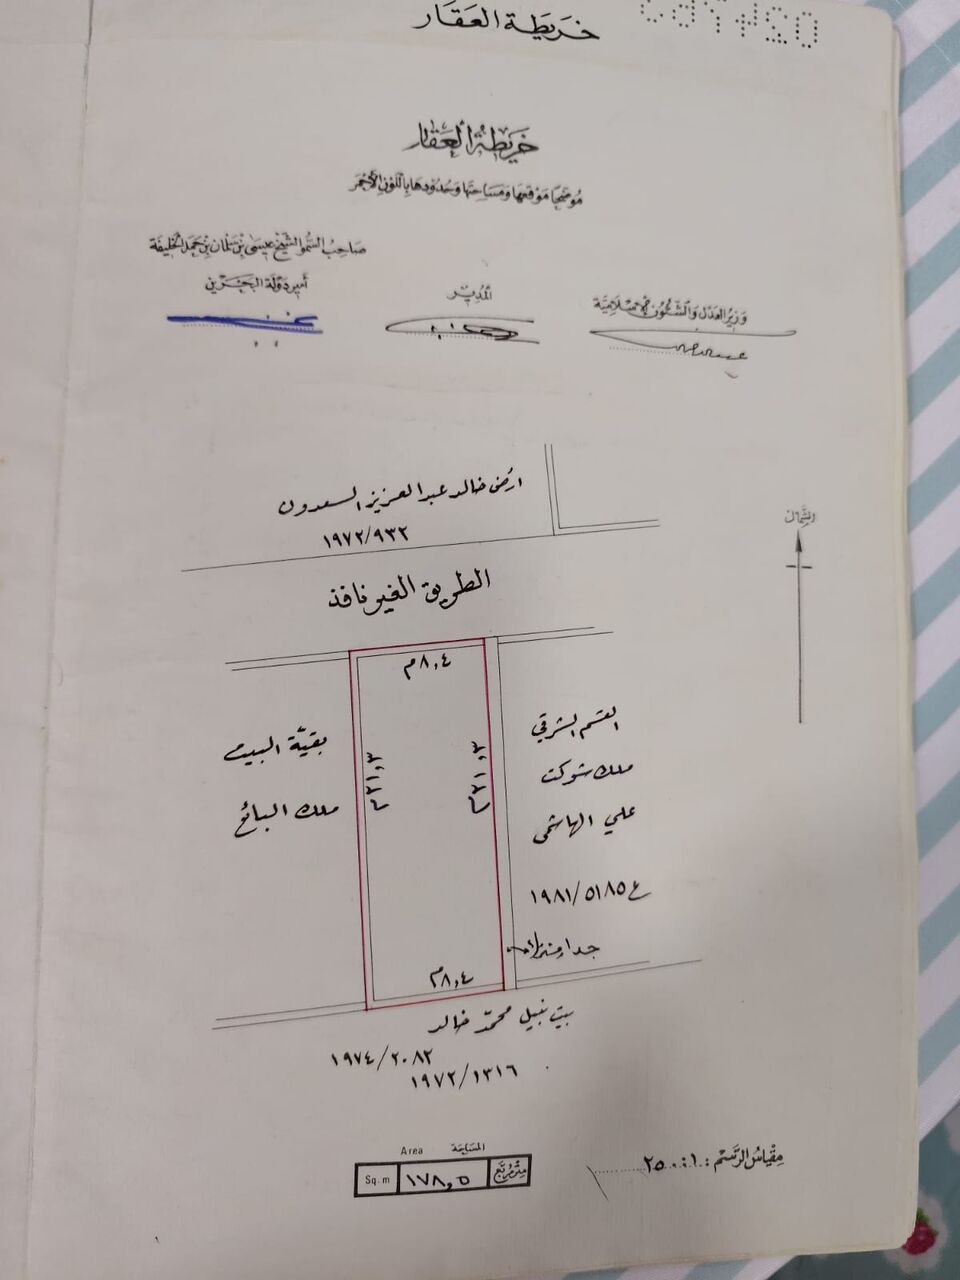 خريطة العقار
خريطة العقار
موضحا موقعها ومساحتها وحدودها باللون الأحمر
صاحب السمو الشيخ عيسى بن سلمان بن حمد الخليفة
أمير دولة البحرين
المدير
وزير العدل والشئون الإسلامية
ارض خالد عبدالعزيز السعدون
١٩٧٢/٩٣٢
الشمال
الطريق الغير نافذ
٨,٤م
القسم الشرقي
ملك شوكت
علي الهاشمي
ع ٥١٨٥/١٩٨١
بقية البيت
ملك البائع
٢١,٣م
٢١,٣م
جدار مشترك
٨,٤م
بيت نبيل محمد خالد
١٩٧٤/٢٠٨٢
١٩٧٢/١٣١٦
المساحة Area
متر مربع ١٧٨,٥ Sq.m
مقياس الرسم: ١:٢٥٠